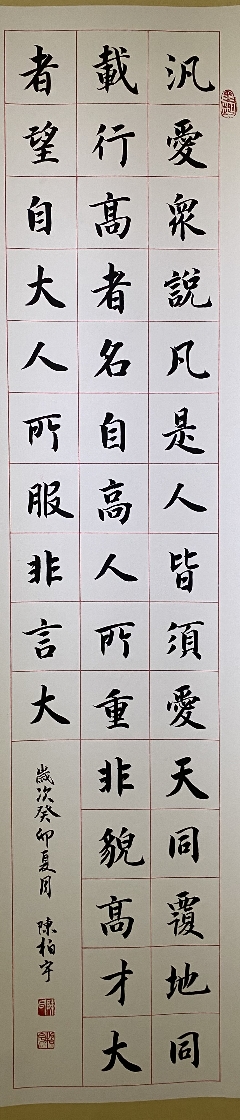 汎愛眾說凡是人皆須愛天同覆地同
載行高者名自高人所重非貌高才大
者望自大人所服非言大
歲次癸卯夏月 陳柏宇